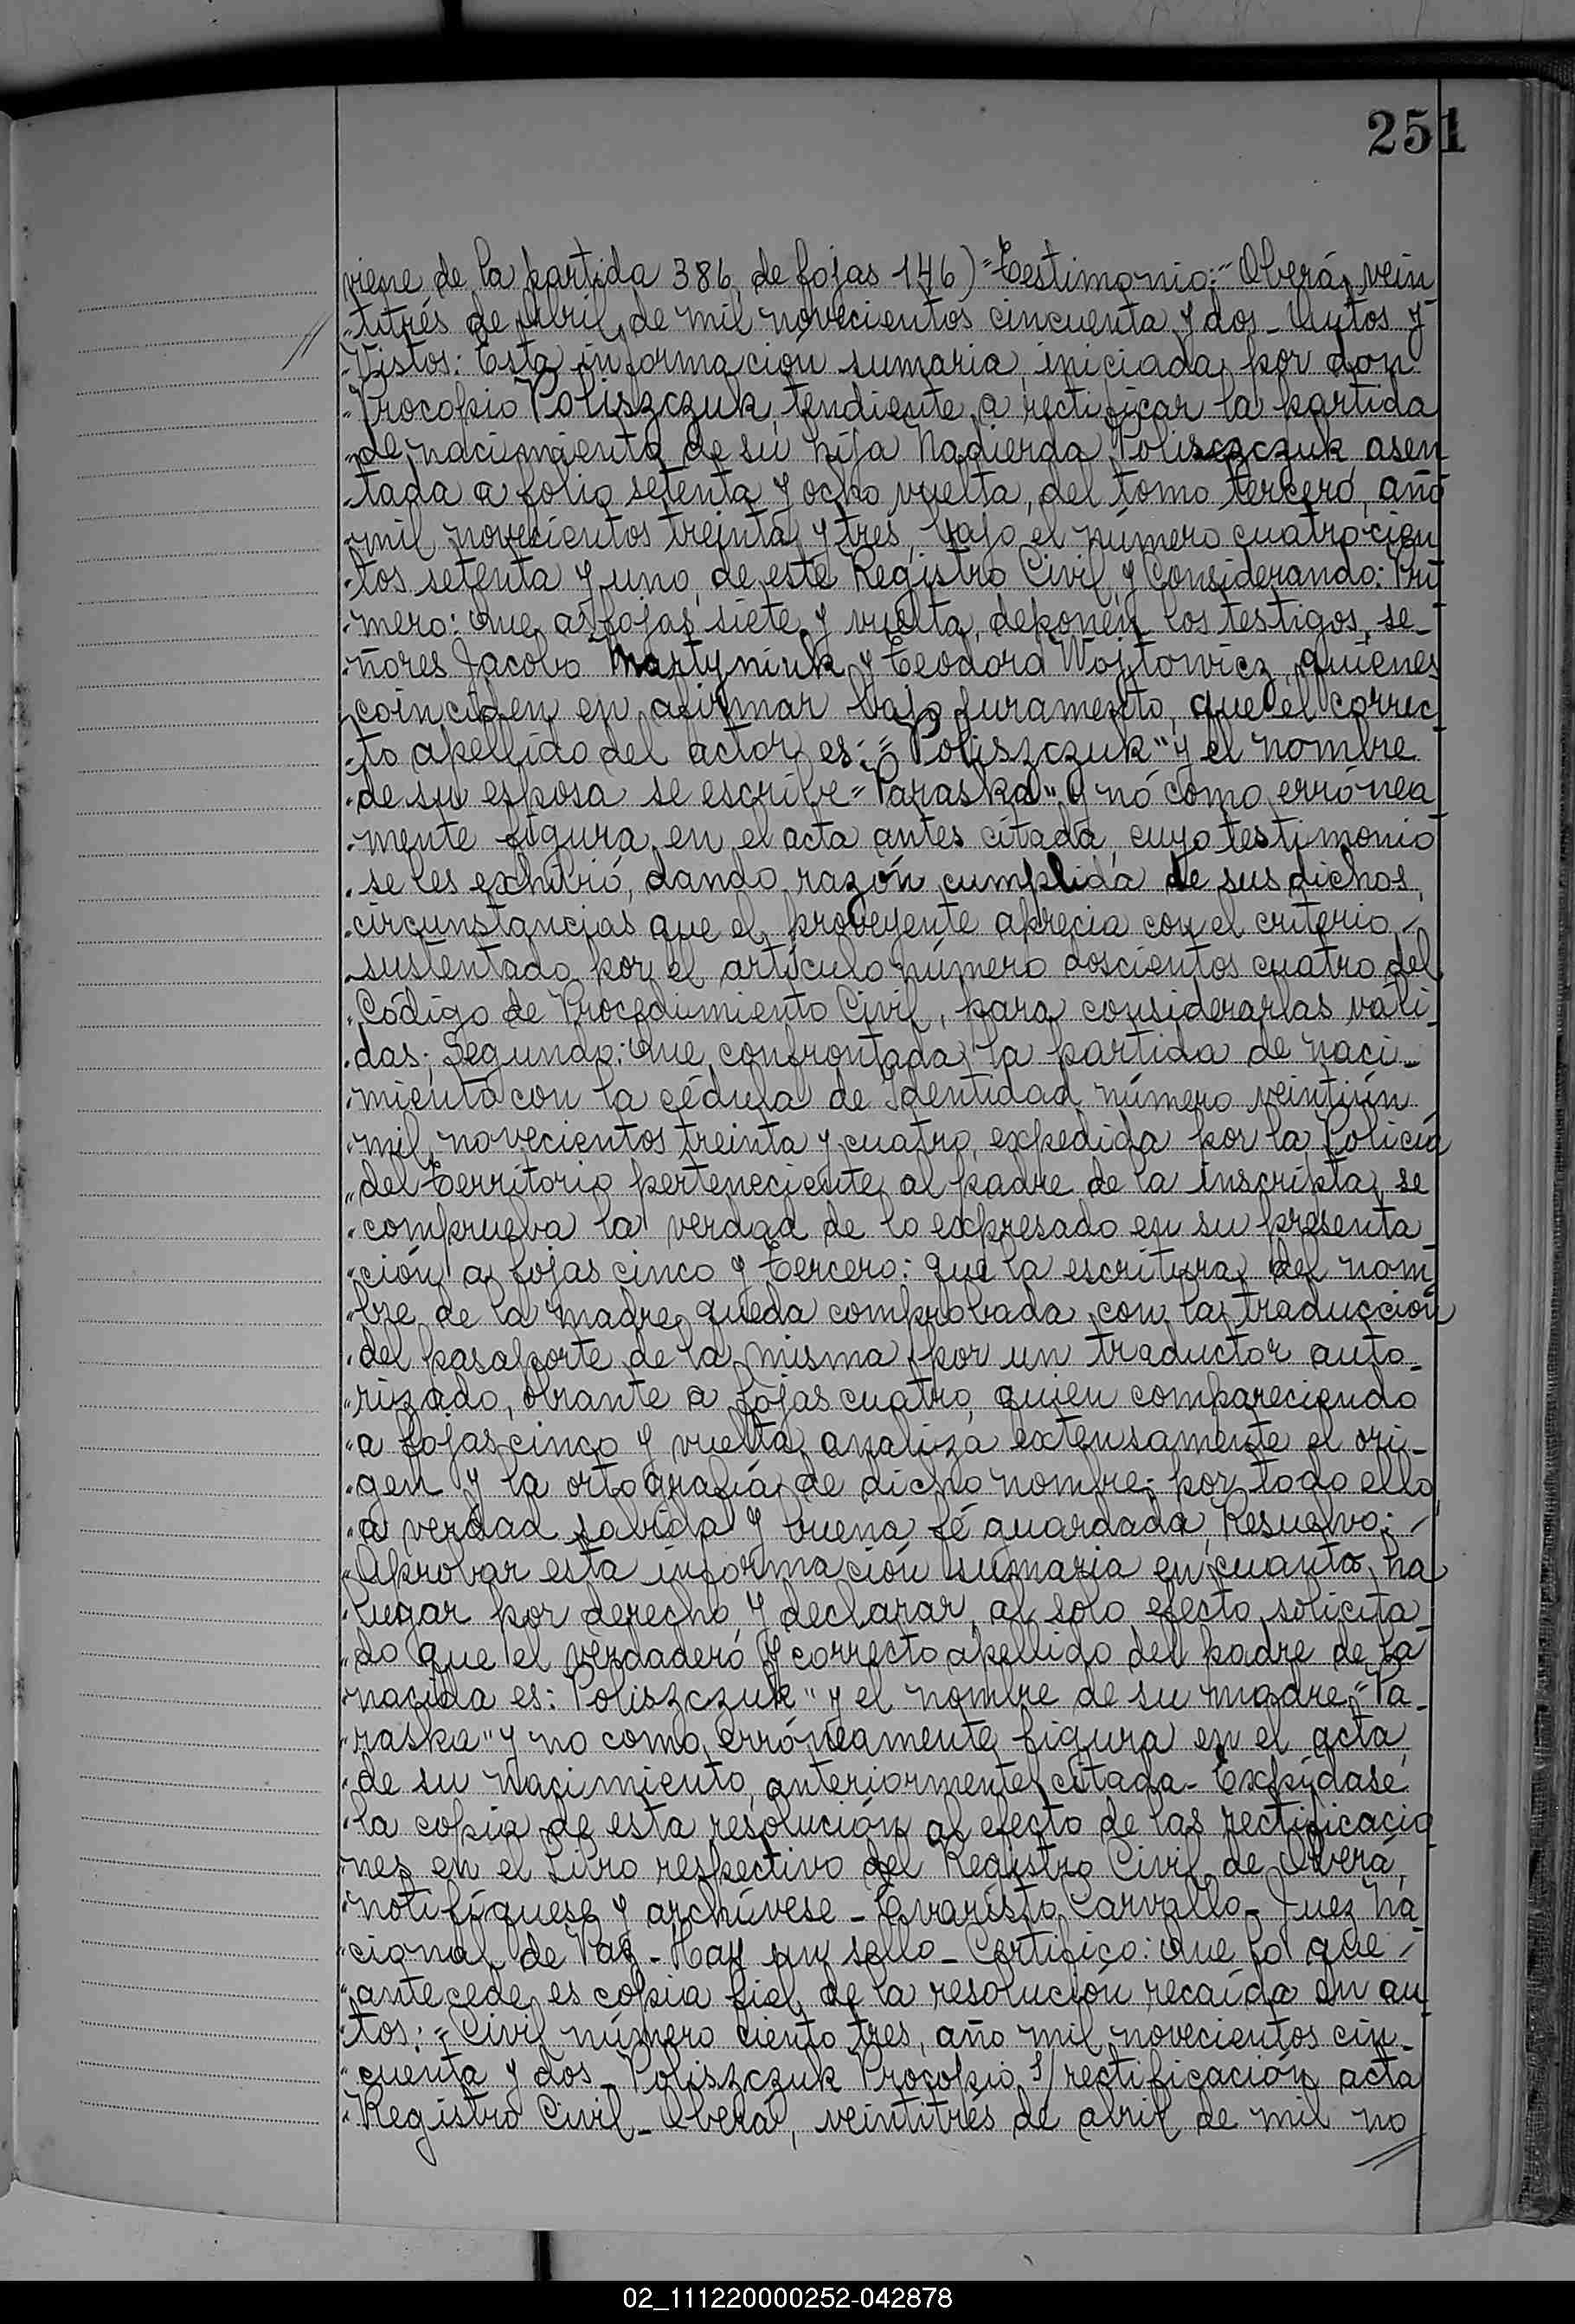 251
viene de la partida 386, de fojas 146)="Testimonio:- Oberá, vein
"titrés de Abril, de mil novecientos cincuenta y dos_ Autos y
"Vistos: Esta información sumaria, iniciada por don
"Procopio Poliszczuk, tendiente a rectificar la partida
"de nacimiento de su hija Nadierda Poliszczuk, asen
"tada a folio setenta y ocho vuelta, del tomo tercero, año
"mil novecientos treinta y tres, bajo el número cuatrocien
"tos setenta y uno, de este Registro Civil, y Considerando: Pri
"mero: Que a fojas siete y vuelta, deponen los testigos, se_
"ñores Jacobo Martyniuk y Teodoro Wojtowicz, quienes
"coinciden en afirmar bajo juramento, que el correc
"to apellido del actor es:="Poliszczuk" y el nombre
"de su esposa se escribe="Paraska" y nó como errónea
"mente figura en el acta antes citada, cuyo testimonio
"se les exhibió, dando razón cumplida de sus dichos,
"circunstancias que el proveyente aprecia con el criterio -
"sustentado por el artículo número doscientos cuatro del
"Código de Procedimiento Civil, para considerarlas váli_
"das; Segundo: Que, confrontada la partida de naci_
"miento con la cédula de Identidad número veintiún
"mil novecientos treinta y cuatro, expedida por la Policía
"del Territorio perteneciente al padre de la inscripta, se
"comprueba la verdad de lo expresado en su presenta
"ción a fojas cinco y Tercero: que la escritura del nom
"bre de la madre, queda comprobada con la traducción
"del pasaporte de la misma por un traductor auto_
"rizado, obrante a fojas cuatro, quien compareciendo
"a fojas cinco y vuelta analiza extensamente el ori_
"gen y la ortografía de dicho nombre; por todo ello,
"a verdad sabida y buena fé guardada, Resuelvo: -
"Aprobar esta información sumaria en cuanto ha
"lugar por derecho, y declarar, al solo efecto solicita
"do que el verdadero y correcto apellido del padre de la
"nacida es: Poliszczuk" y el nombre de su madre="Pa_
"raska" y no como erróneamente figura en el acta
"de su nacimiento, anteriormente citada_ Expídase
"la copia de esta resolución al efecto de las rectificacio
"nes en el Libro respectivo del Registro Civil de Oberá,
"notifíquese y archívese _ Evaristo Carvallo_ Juez Na
"cional de Paz_ Hay un sello_ Certifico: Que lo que -
"antecede, es copia fiel de la resolución recaída en au
"tos:= Civil número ciento tres, año mil novecientos cin_
"cuenta y dos_ Poliszczuk Procopio s/ rectificación acta
"Registro Civil_ Oberá, veintitrés de abril de mil no
02_111220000252-042878